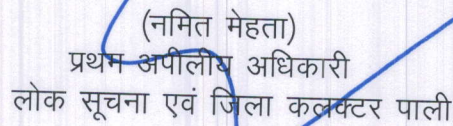 (नमित मेहता)
प्रथम अपीलीय अधिकारी
लोक सूचना एवं जिला कलक्टर पाली